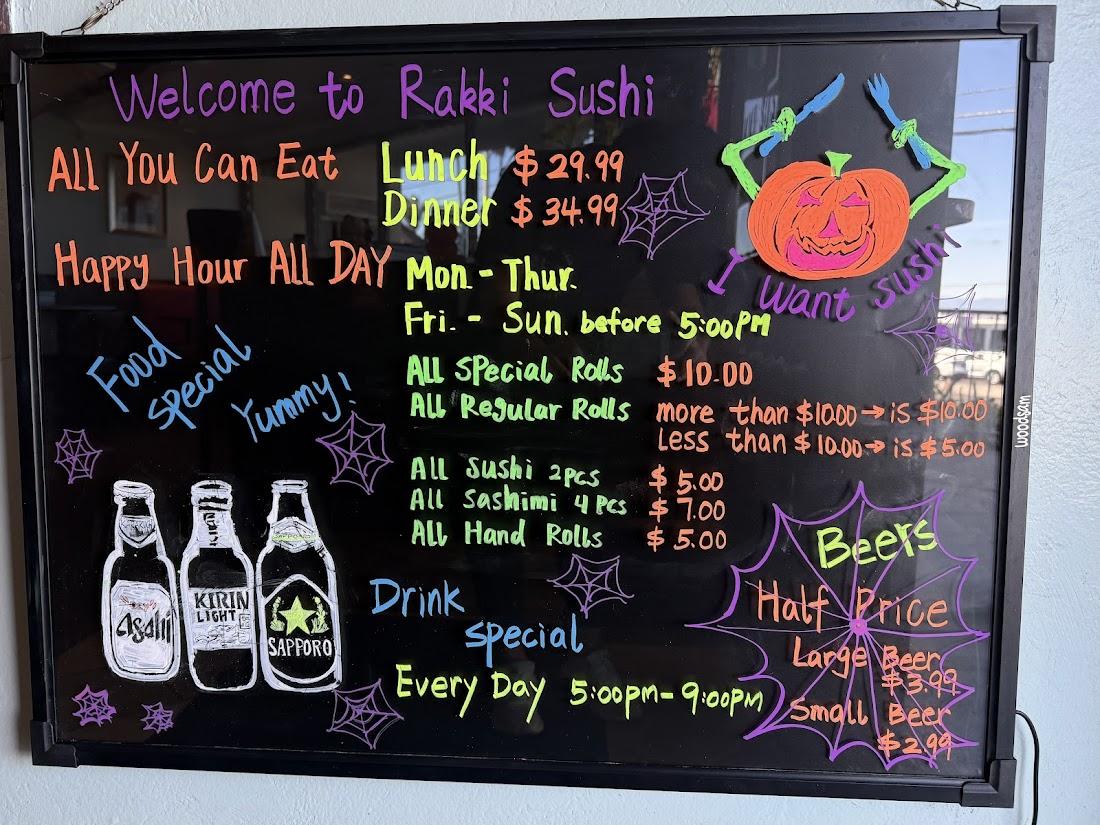 Welcome to Rakki Sushi
All You Can Eat Lunch $29.99
Dinner $34.99
Happy Hour All DAY Mon. - Thur.
Fri. - Sun. before 5:00PM
I want sushi
Food
special
Yummy!
All Special Rolls $10.00
All Regular Rolls more than $10.00 → is $10.00
Less than $10.00 → is $5.00
All Sushi 2pcs $5.00
All Sashimi 4pcs $7.00
All Hand Rolls $5.00
Asahi
KIRIN
LIGHT
SAPPORO
Drink
special
Every Day 5:00pm-9:00PM
Beers
Half Price
Large Beer
$3.99
Small Beer
$2.99
woodsam